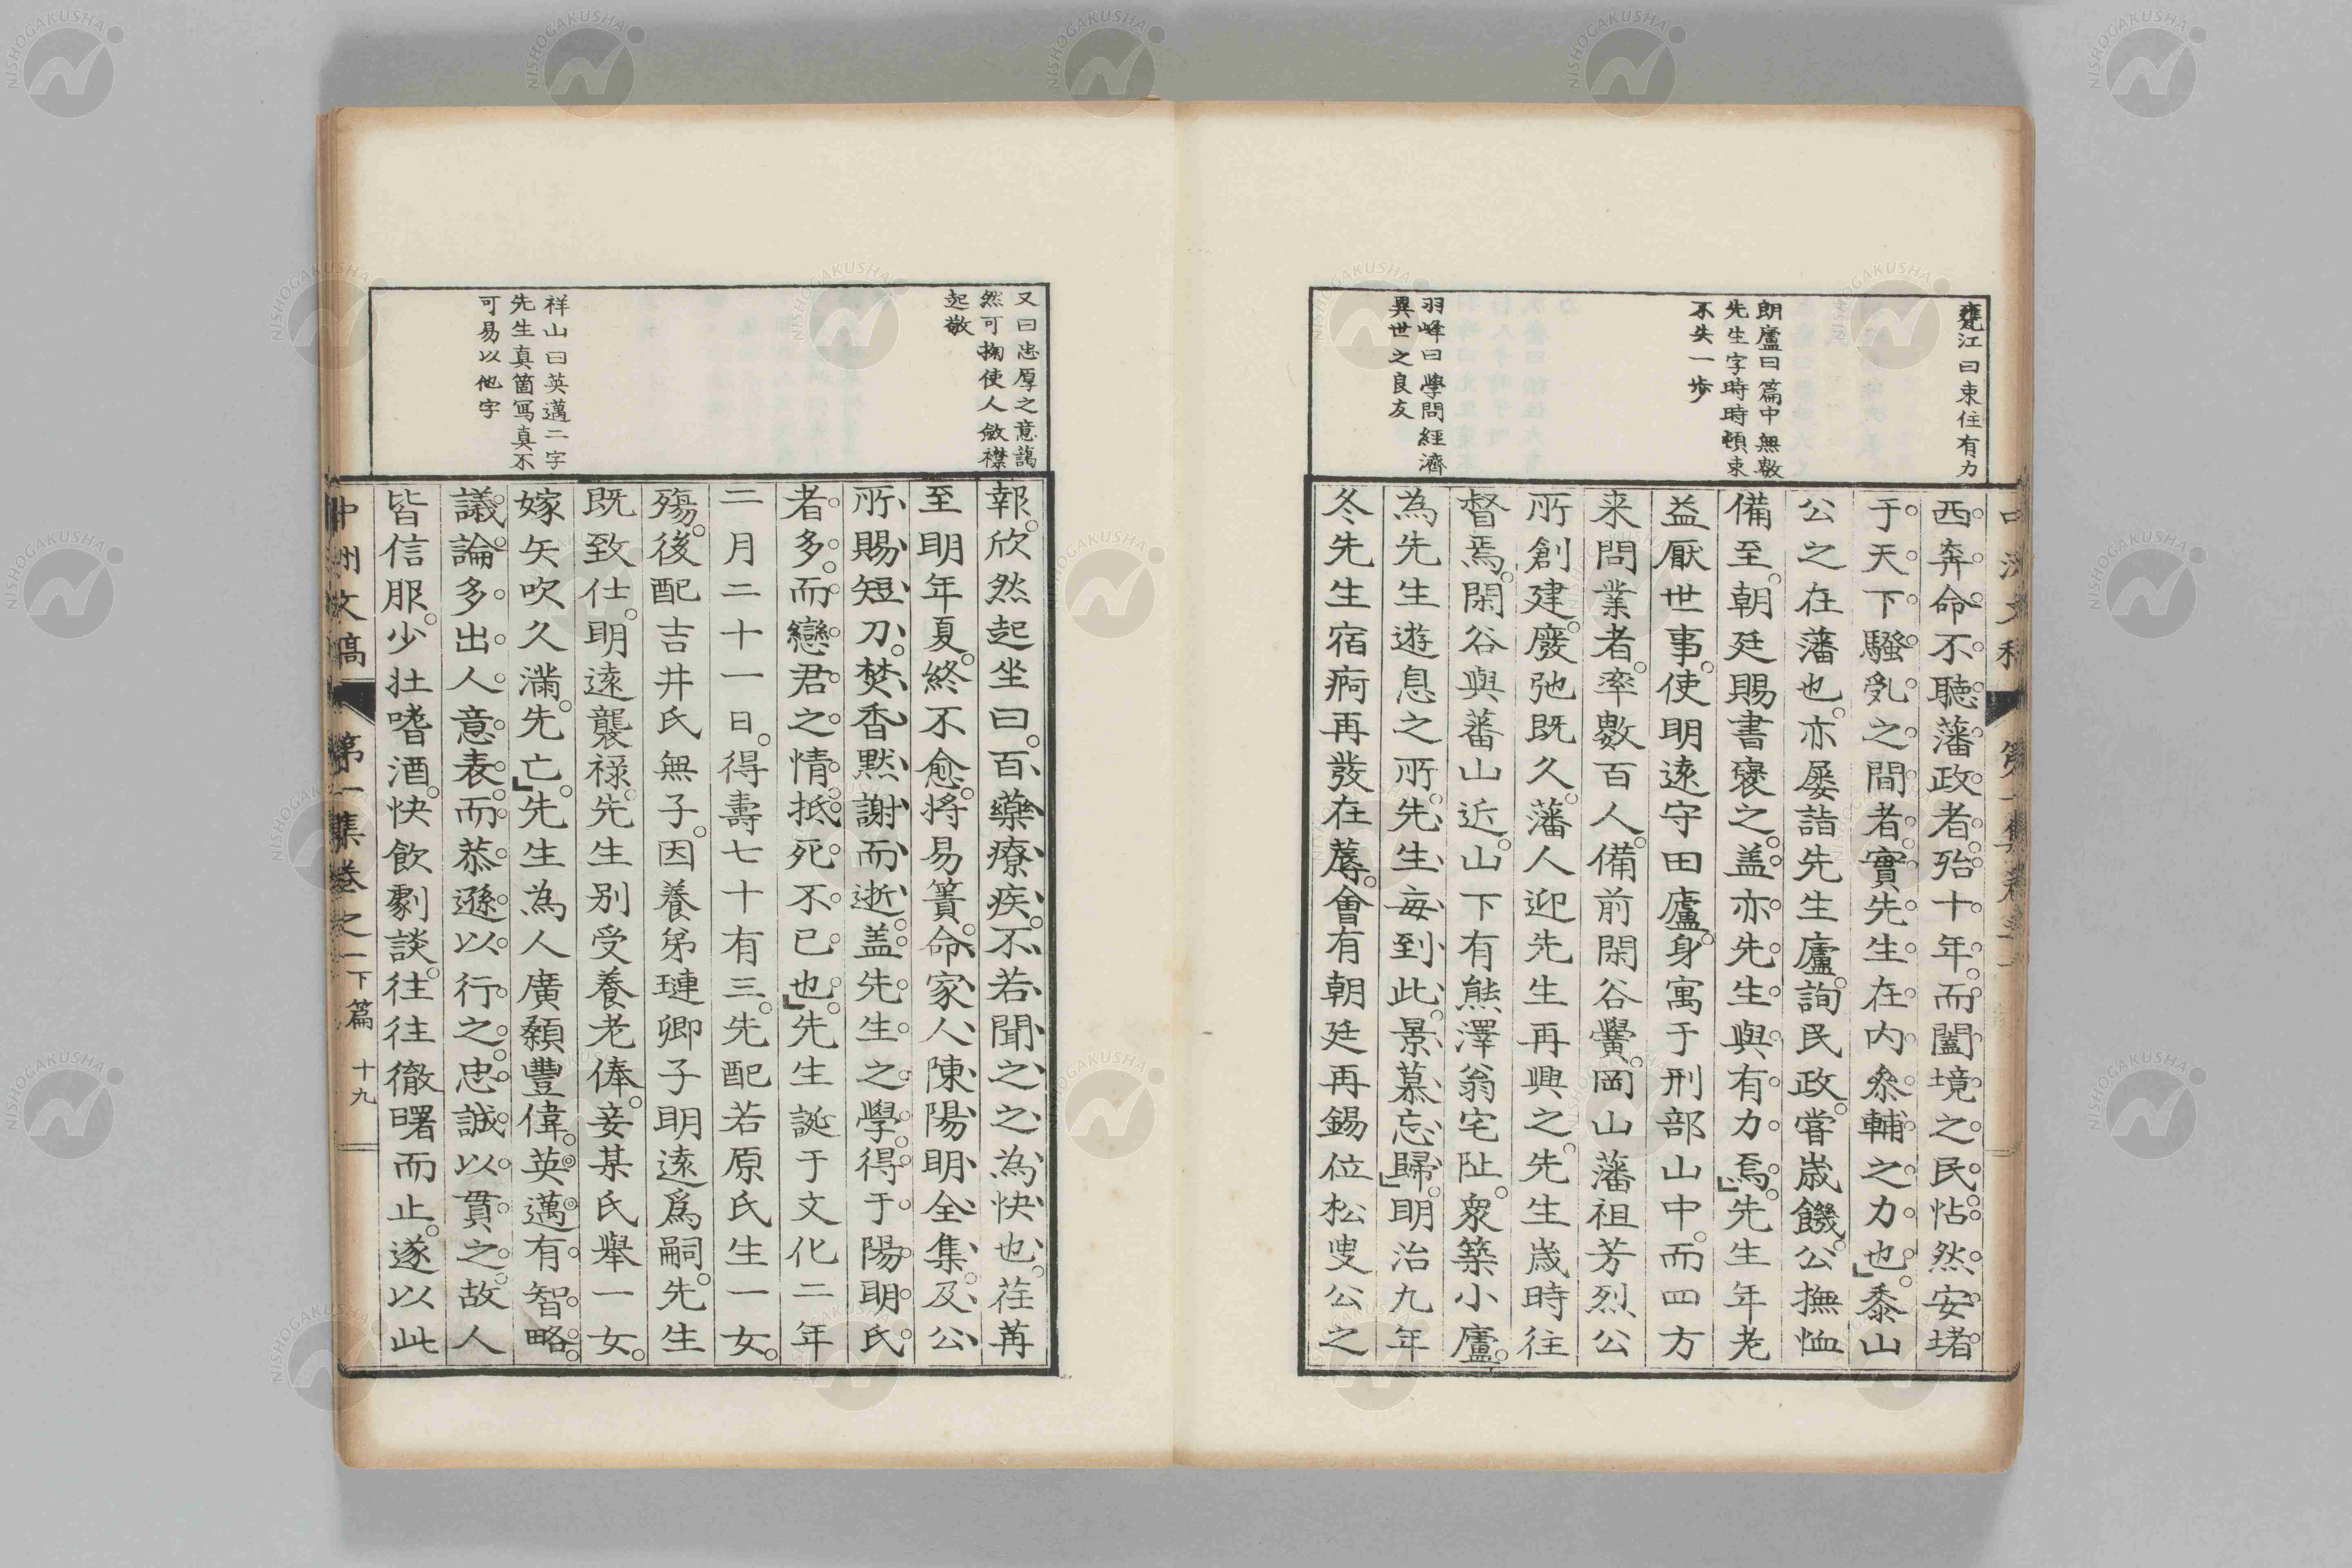 甕江曰束住有力
朗廬曰篇中無數
先生字時時頓束
不失一步
羽峰曰學問經濟
異世之良友
西奔命不聽藩政者殆十年而闔境之民帖然安堵
于天下騷乱之間者實先生在内叅輔之力也黍山
公之在藩也亦屡詣先生廬詢民政嘗歳饑公撫恤
備至朝廷賜書褒之盖亦先生與有力焉先生年老
益厭世事使明遠守田廬身寓于刑部山中而四方
来問業者率數百人備前閑谷黌岡山藩祖芳烈公
所創建廢弛既久藩人迎先生再興之先生歳時往
督焉閑谷與蕃山近山下有熊澤翁宅阯衆築小廬
為先生遊息之所先生毎到此景慕忘歸明治九年
冬先生宿痾再發在蓐會有朝廷再錫位松叟公之
又曰忠厚之意藹
然可掬使人斂襟
起敬
祥山曰英邁二字
先生真箇冩真不
可易以他字
報欣然起坐曰百藥療疾不若聞之之為快也荏苒
至明年夏終不愈將易簀命家人陳陽明全集及公
所賜短刀焚香黙謝而逝盖先生之學得于陽明氏
者多而戀君之情抵死不已也先生誕于文化二年
二月二十一日得壽七十有三先配若原氏生一女
殤後配吉井氏無子因養弟璉卿子明遠爲嗣先生
既致仕明遠襲禄先生别受養老俸妾某氏舉一女
嫁矢吹久滿先亡先生為人廣顙豐偉英邁有智略
議論多出人意表而恭遜以行之忠誠以貫之故人
皆信服少壮嗜酒快飲劇談往往徹曙而止遂以此
中洲文稿 第一集卷之一下篇 十九
NISHOGAKUSHA